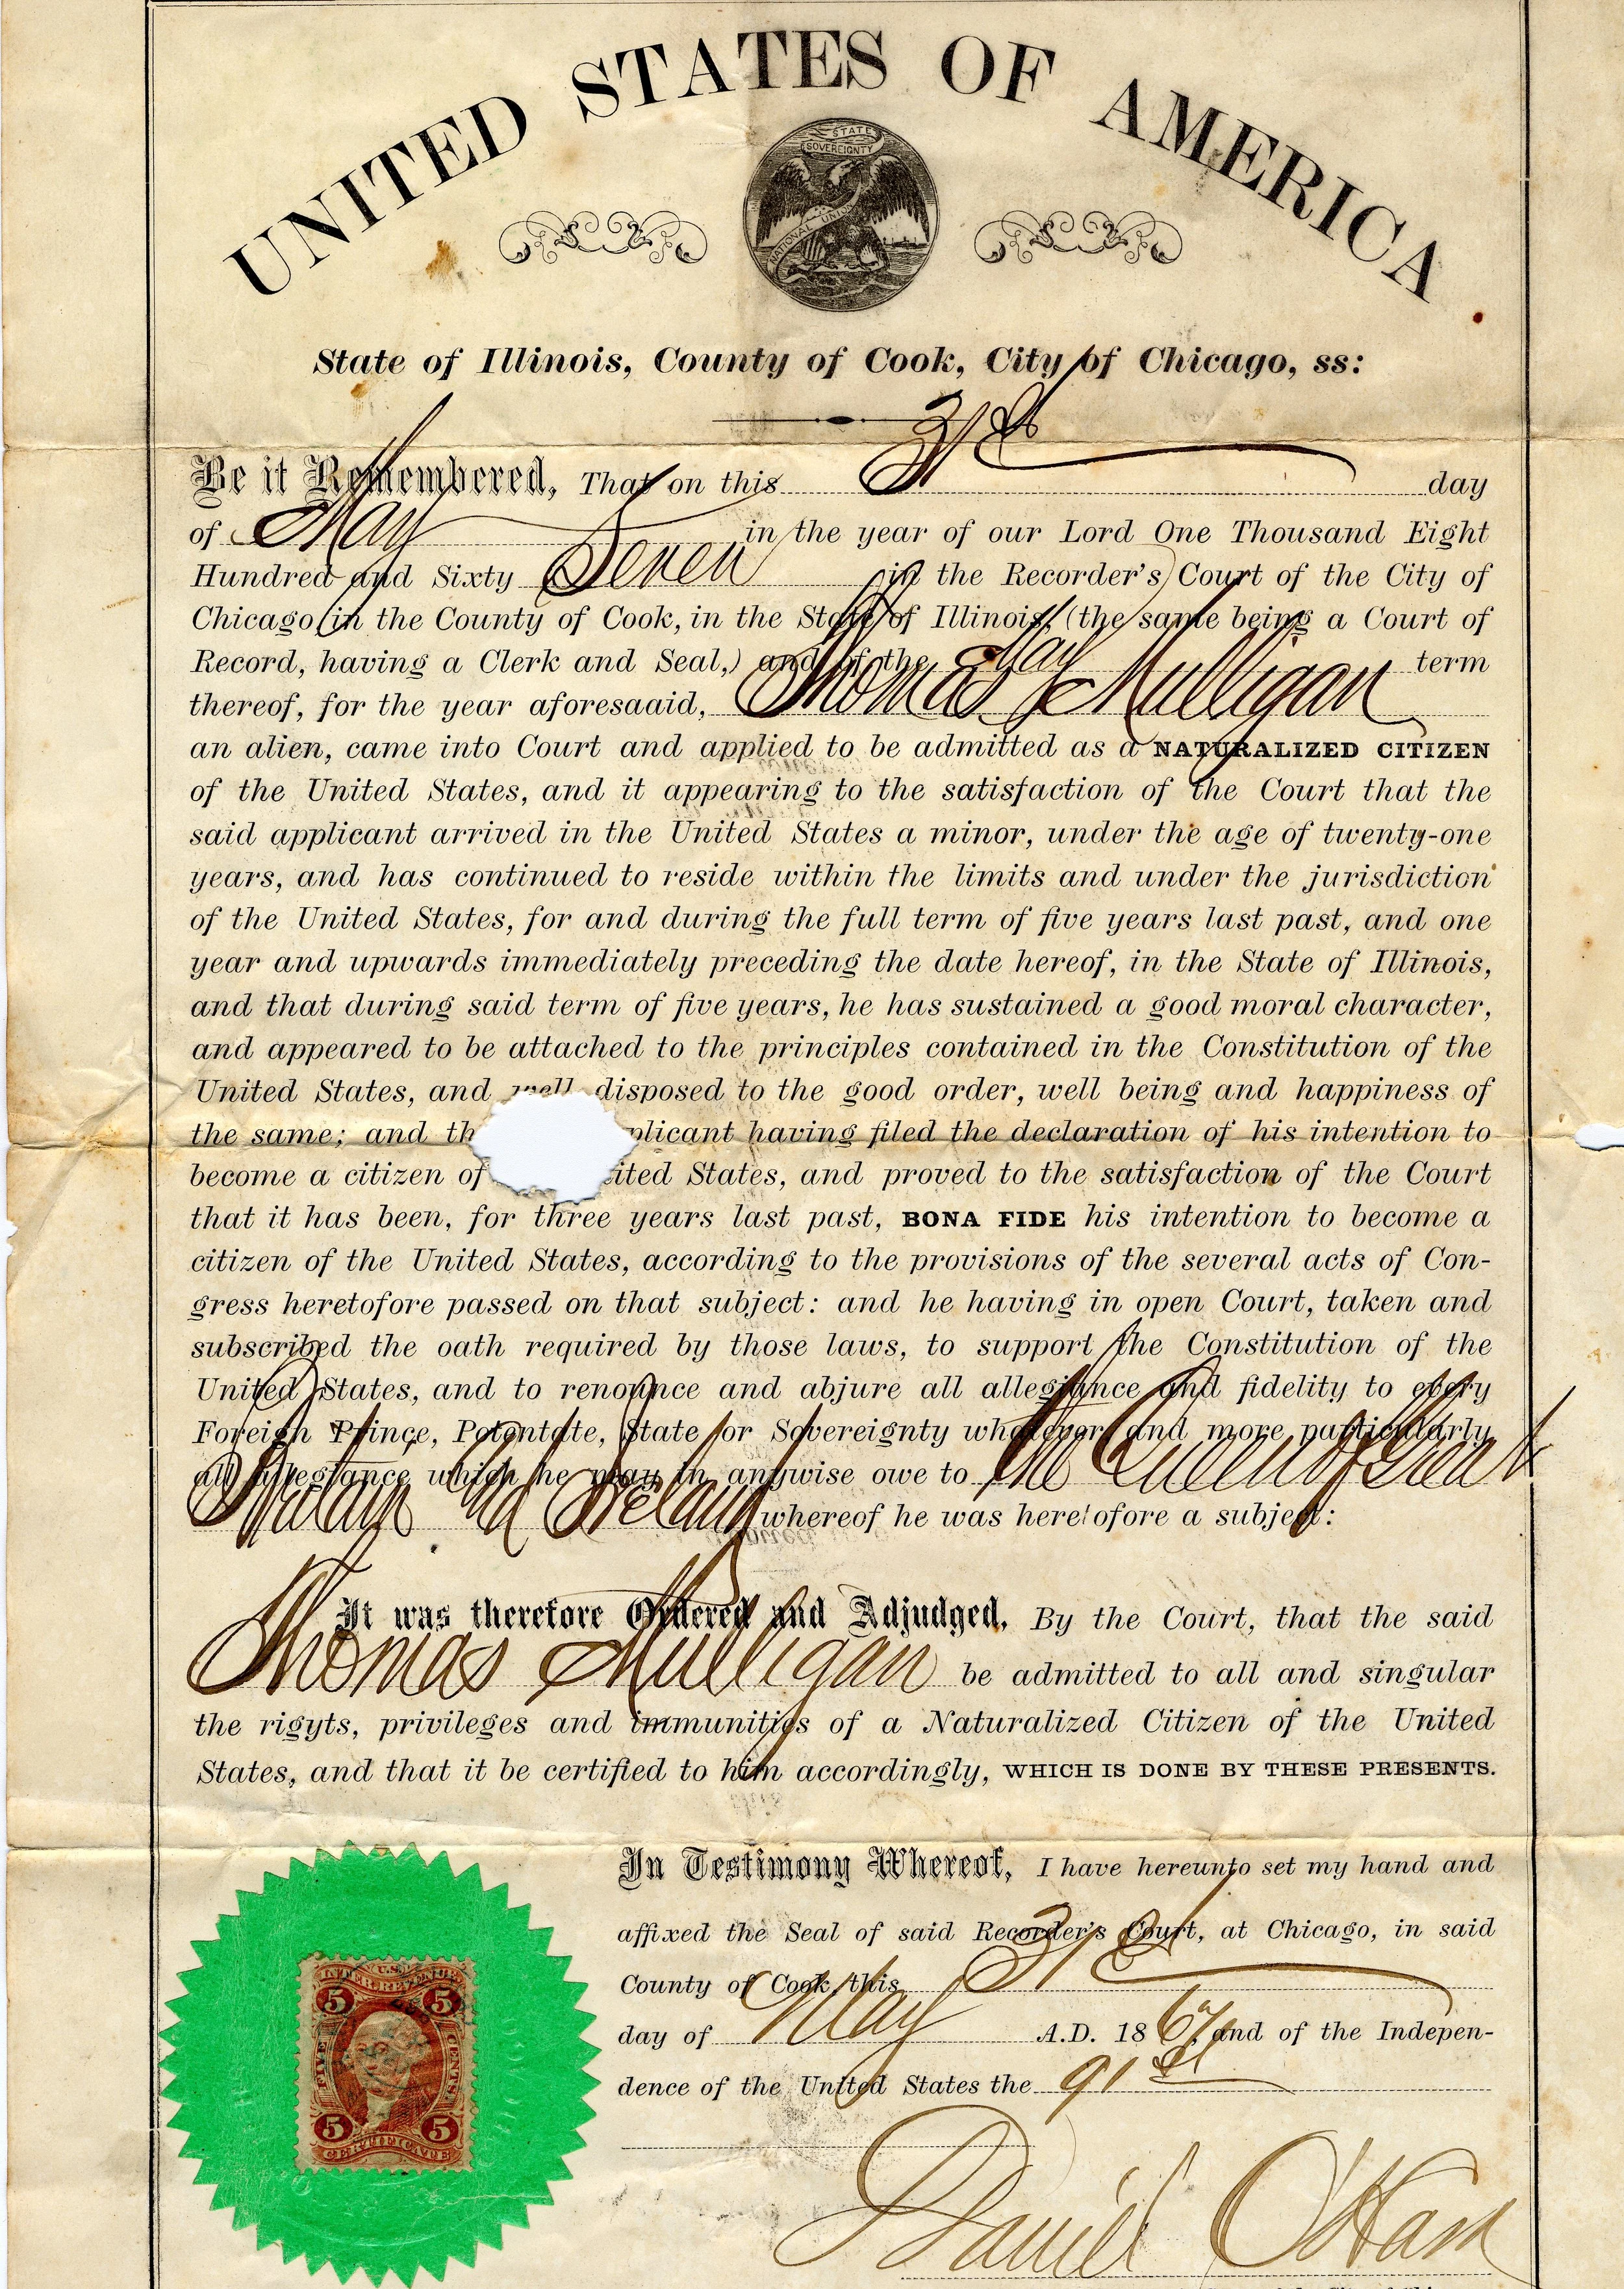 UNITED STATES OF AMERICA
STATE
SOVEREIGNTY
NATIONAL UNION
State of Illinois, County of Cook, City of Chicago, ss:
Be it Remembered, That on this 31st day
of May in the year of our Lord One Thousand Eight
Hundred and Sixty Seven in the Recorder's Court of the City of
Chicago in the County of Cook, in the State of Illinois, (the same being a Court of
Record, having a Clerk and Seal,) and of the May term
thereof, for the year aforesaaid, Thomas Mulligan
an alien, came into Court and applied to be admitted as a NATURALIZED CITIZEN
of the United States, and it appearing to the satisfaction of the Court that the
said applicant arrived in the United States a minor, under the age of twenty-one
years, and has continued to reside within the limits and under the jurisdiction
of the United States, for and during the full term of five years last past, and one
year and upwards immediately preceding the date hereof, in the State of Illinois,
and that during said term of five years, he has sustained a good moral character,
and appeared to be attached to the principles contained in the Constitution of the
United States, and well disposed to the good order, well being and happiness of
the same; and th plicant having filed the declaration of his intention to
become a citizen of ited States, and proved to the satisfaction of the Court
that it has been, for three years last past, BONA FIDE his intention to become a
citizen of the United States, according to the provisions of the several acts of Con-
gress heretofore passed on that subject: and he having in open Court, taken and
subscribed the oath required by those laws, to support the Constitution of the
United States, and to renounce and abjure all allegiance and fidelity to every
Foreign Prince, Potentate, State or Sovereignty whatever, and more particularly
all allegiance which he may in anywise owe to the Queen of Great
Britain and Ireland whereof he was heretofore a subject:
It was therefore Ordered and Adjudged, By the Court, that the said
Thomas Mulligan be admitted to all and singular
the rigyts, privileges and immunities of a Naturalized Citizen of the United
States, and that it be certified to him accordingly, WHICH IS DONE BY THESE PRESENTS.
In Testimony Whereof, I have hereunto set my hand and
affixed the Seal of said Recorder's Court, at Chicago, in said
County of Cook, this 31st
day of May A.D. 1867, and of the Indepen-
dence of the United States the 91st
Daniel O'Hara
U.S.
INTER. REVENUE
5 5
FIVE CENTS
5 5
CERTIFICATE